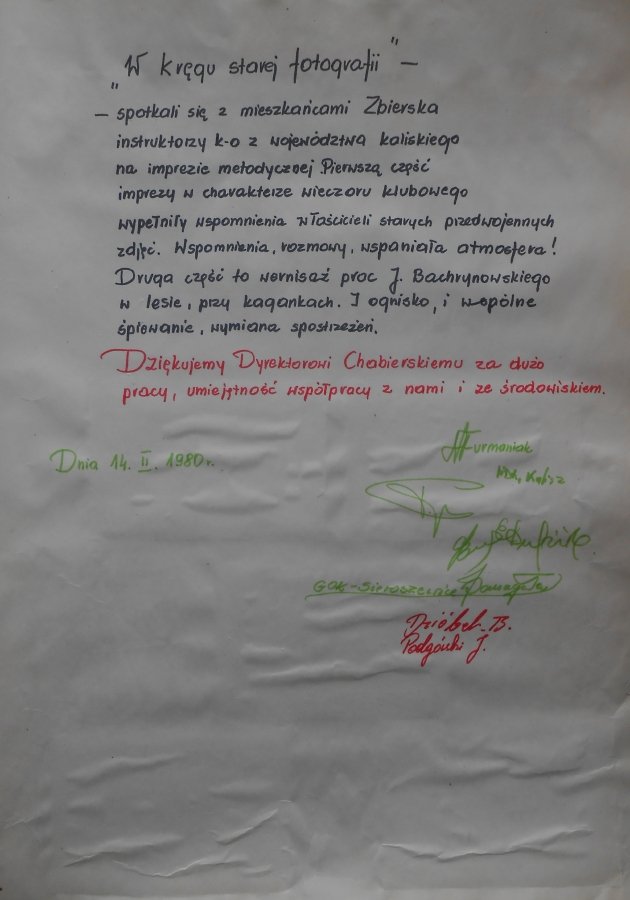 „W kręgu starej fotografii" –
– spotkali się z mieszkańcami Zbierska
instruktorzy k-o z województwa kaliskiego
na imprezie metodycznej Pierwszą część
imprezy w charakterze wieczoru klubowego
wypełniły wspomnienia właścicieli starych przedwojennych
zdjęć. Wspomnienia, rozmowy, wspaniała atmosfera!
Druga część to wernisaż prac J. Bachrynowskiego
w lesie, przy kagankach. I ognisko, i wspólne
śpiewanie, wymiana spostrzeżeń.
Dziękujemy Dyrektorowi Chabierskiemu za dużo
pracy, umiejętność współpracy z nami i ze środowiskiem.
Dnia 14. II. 1980r.
Furmaniak
WDK, Kalisz
GOK-Sieroszewice
Dzióbek B.
Podgórski J.